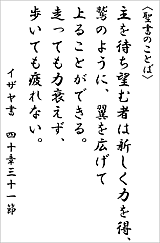 〈聖書のことば〉
主を待ち望む者は新しく力を得、
鷲のように、翼を広げて
上ることができる。
走っても力衰えず、
歩いても疲れない。
イザヤ書 四十章三十一節